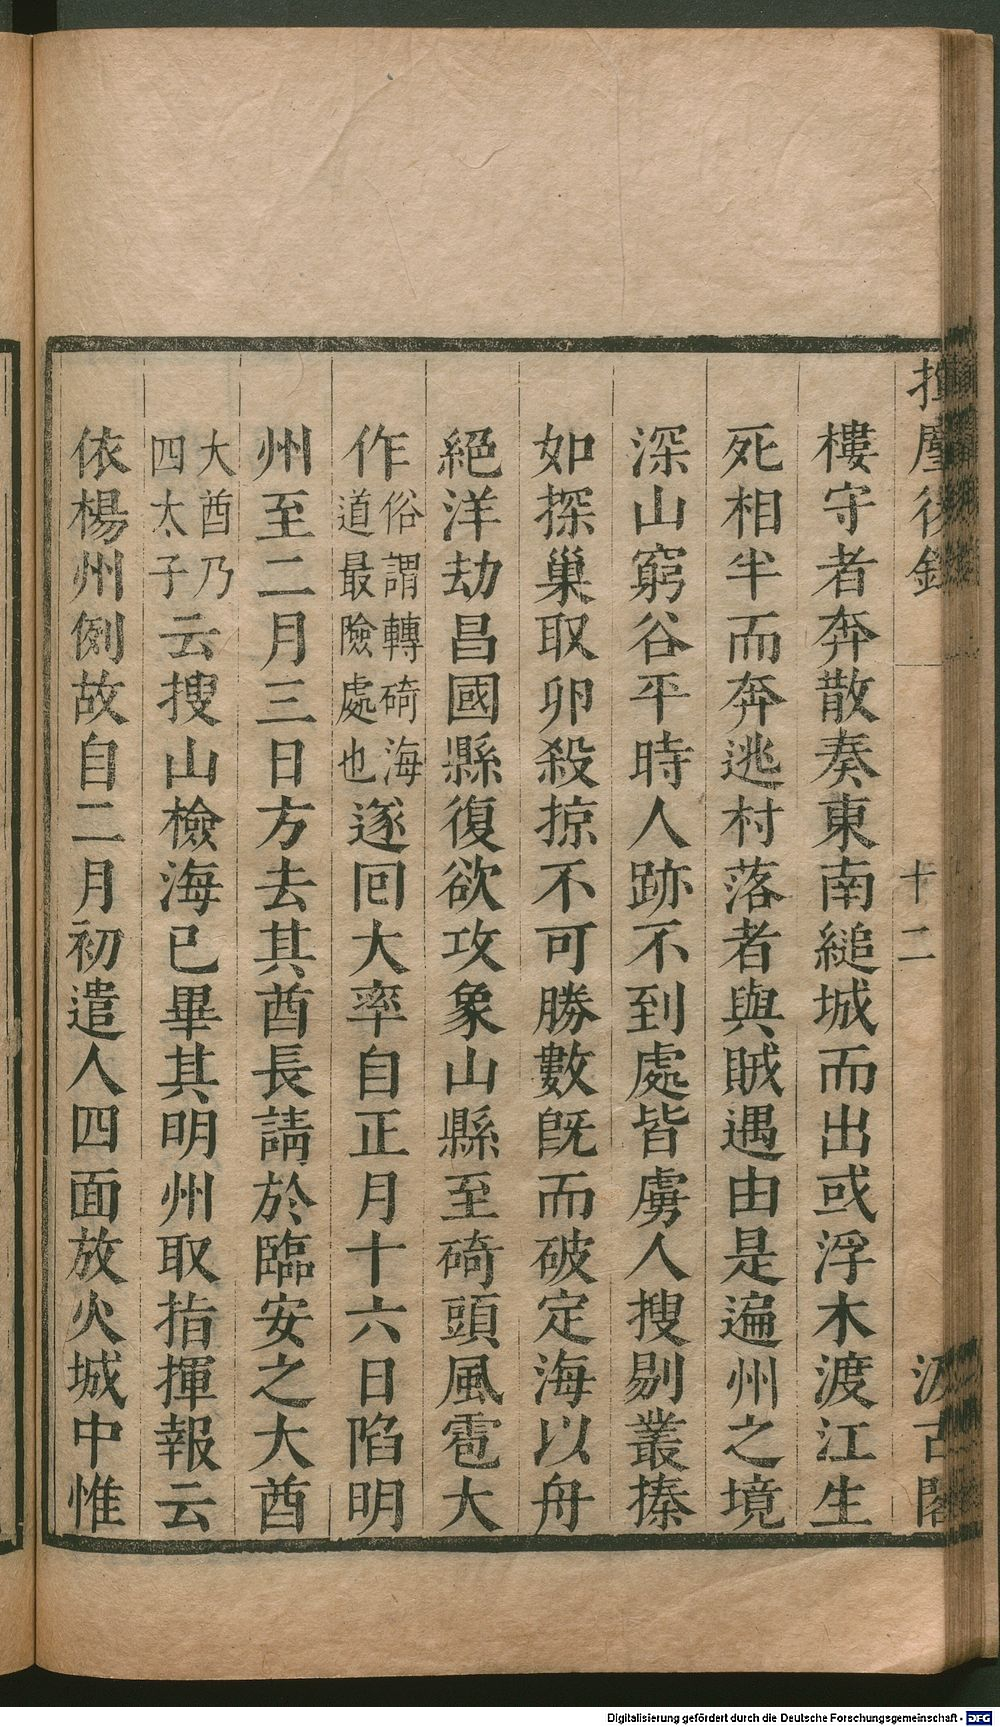 揮麈後錄
十二
汲古閣
樓守者奔散奏東南縋城而出或浮木渡江生
死相半而奔逃村落者與賊遇由是遍州之境
深山窮谷平時人跡不到處皆虜人搜剔叢搸
如探巢取卵殺掠不可勝數旣而破定海以舟
絕洋劫昌國縣復欲攻象山縣至碕頭風雹大
作俗謂轉碕海道最險處也遂囘大率自正月十六日陷明
州至二月三日方去其酋長請於臨安之大酋
大酋乃四太子云搜山檢海已畢其明州取指揮報云
依楊州例故自二月初遣人四面放火城中惟
Digitalisierung gefördert durch die Deutsche Forschungsgemeinschaft - DFG